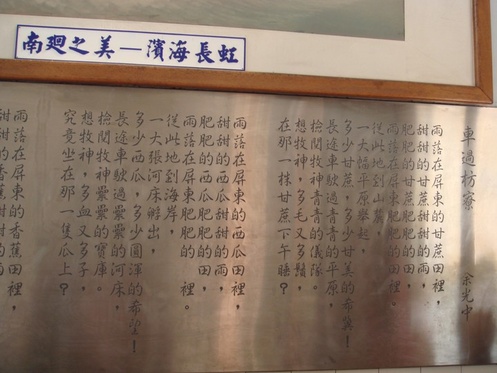 南廻之美—濱海長虹
車過枋寮
余光中
雨落在屏東的甘蔗田裡，
甜甜的甘蔗甜甜的雨，
肥肥的甘蔗肥肥的田，
雨落在屏東肥肥的田裡。
從此地到山麓，
一大幅平原舉起，
多少甘蔗，多少甘美的希冀！
長途車駛過青青的平原，
檢閱牧神青青的儀隊。
想牧神，多毛又多鬚，
在那一株甘蔗下午睡？
雨落在屏東的西瓜田裡，
甜甜的西瓜甜甜的雨，
肥肥的西瓜肥肥的田，
雨落在屏東肥肥的田裡。
從此地到海岸，
一大張河床孵出，
多少西瓜，多少圓渾的希望！
長途車駛過纍纍的河床，
檢閱牧神纍纍的寶庫。
想牧神，多血又多子，
究竟坐在那一隻瓜上？
雨落在屏東的香蕉田裡，
甜甜的香蕉甜甜的